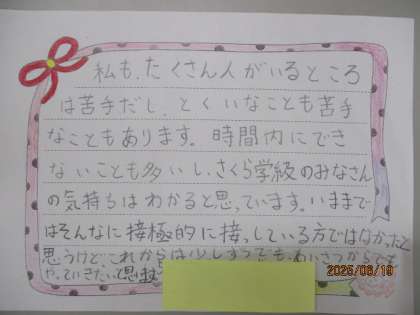 私も、たくさん人がいるところ
は苦手だし、とくいなことも苦手
なこともあります。時間内にでき
ないことも多いし、さくら学級のみなさん
の気持ちはわかると思っています。いままで
はそんなに接極的に接っしている方ではなかったと
思うけど、これからは少しずつでも、あいさつからでも
やっていきたいと思いま
2025/06/19